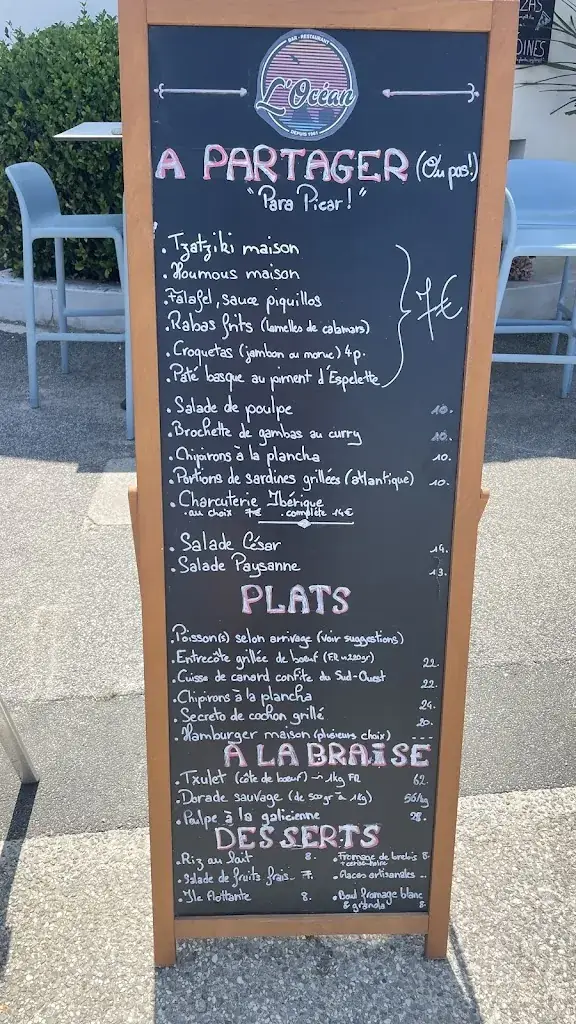 BAR - RESTAURANT
L'Océan
DEPUIS 1961
A PARTAGER (Ou pas!)
"Para Picar!"
. Tzatziki maison
. Houmous maison
. Falafel, sauce piquillos
. Rabas frits (lamelles de calamars)
. Croquetas (jambon ou morue) 4p.
. Pâté basque au piment d'Espelette
7€
. Salade de poulpe 10.
. Brochette de gambas au curry 10.
. Chipirons à la plancha 10.
. Portions de sardines grillées (atlantique) 10.
. Charcuterie Ibérique
. au choix 7€ . complète 14€
. Salade César 14.
. Salade Paysanne 13.
PLATS
. Poisson(s) selon arrivage (voir suggestions)
. Entrecôte grillée de boeuf (FR 220gr) 22.
. Cuisse de canard confite du Sud-Ouest 22.
. Chipirons à la plancha 24.
. Secreto de cochon grillé 20.
. Hamburger maison (plusieurs choix) ---
A LA BRAISE
. Txulet (côte de boeuf) ~ 1kg FR 62.
. Dorade sauvage (de 500gr à 1kg) 56/kg
. Poulpe à la galicienne 28.
DESSERTS
. Riz au lait 8.
. Salade de fruits frais.. 7.
. Ile flottante 8.
. Fromage de brebis 8.
+ cerise noire
. Glaces artisanales ...
. Boul fromage blanc
& granola 8.
DINES